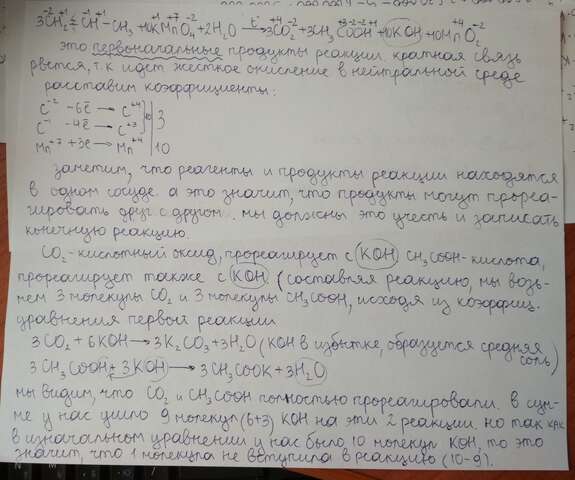 3CH₂=CH-CH₃+10KMnO₄+2H₂O →t° 3CO₂+3CH₃COOH+10KOH+10MnO₂
это первоначальные продукты реакции. кратная связь
рвется, т.к идет жесткое окисление в нейтральной среде
расставим коэффициенты:
C⁻² -6ē → C⁺⁴ | 3
C⁻ -4ē → C⁺³
Mn⁺⁷ +3ē → Mn⁺⁴ | 10
заметим, что реагенты и продукты реакции находятся
в одном сосуде. а это значит, что продукты могут прореа-
гировать друг с другом. мы должны это учесть и записать
конечную реакцию.
CO₂-кислотный оксид, прореагирует с KOH CH₃COOH-кислота,
прореагирует также с KOH (составляя реакцию, мы возь-
мем 3 молекулы CO₂ и 3 молекулы CH₃COOH, исходя из коэффиц.
уравнения первой реакции
3CO₂+6KOH→3K₂CO₃+3H₂O (KOH в избытке, образуется средняя
соль)
3CH₃COOH+3KOH→3CH₃COOK+3H₂O
мы видим, что CO₂ и CH₃COOH полностью прореагировали. в сум-
ме у нас ушло 9 молекул (6+3) KOH на эти 2 реакции. но так как
в изначальном уравнении у нас было 10 молекул KOH, то это
значит, что 1 молекула не вступила в реакцию (10-9).